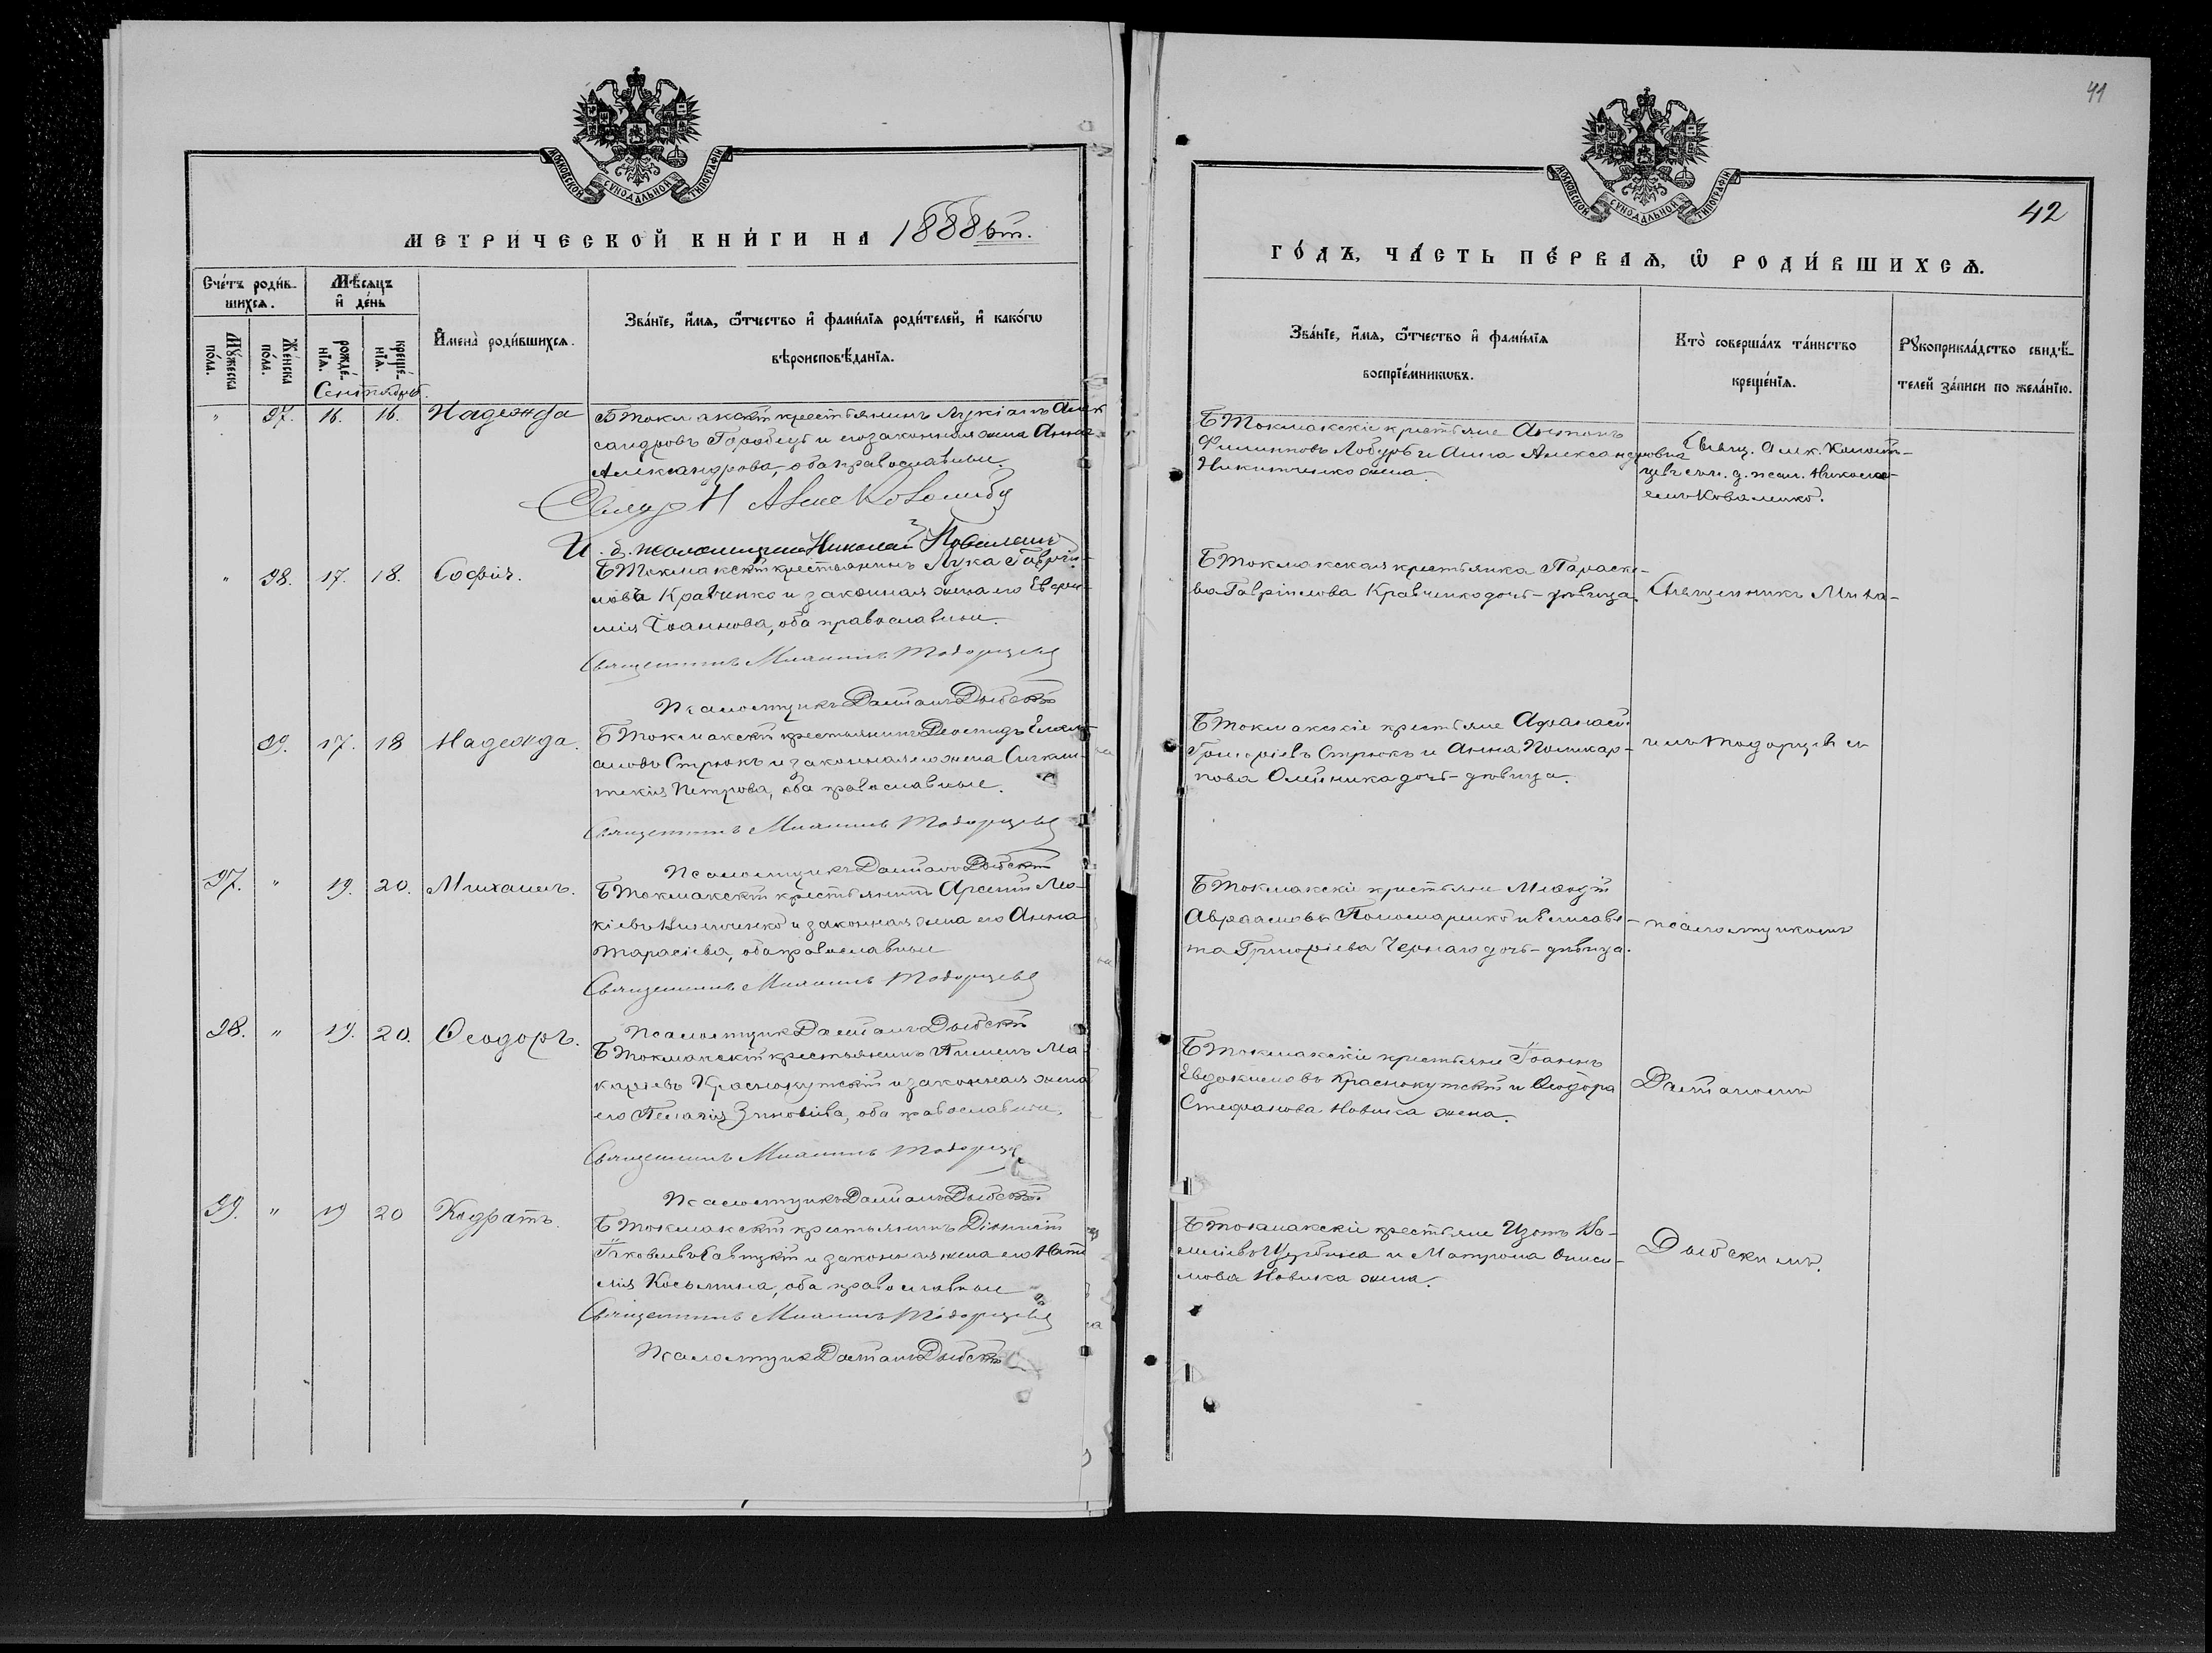 МОСКОВСКОЙ СУНОДАЛЬНОЙ ТИПОГРАФІИ
МЕТРИЧЕСКОЙ КНИ́ГИ НА 1888 вт.
Сче́тъ роди́в-
шихсѧ.
Мѣ́сѧцъ
и҆ де́нь
Мꙋ́жеска
по́ла.
Же́нска
по́ла.
рожде́-
нїѧ.
креще́-
нїѧ.
И҆мена̀ роди́вшихсѧ.
Зва́нїе, и҆́мѧ, ѻ҆́тчество и҆ фами́лїѧ роди́телей, и҆ како́гѡ
вѣроисповѣ́данїѧ.
Сентябрь.
" 97. 16. 16. Надежда
Б Токмакскій крестьянинъ Лукіанъ Алек
сандровъ Горобецъ и его законная жена Анна
Александрова, оба православные.
" 98. 17. 18. Софія.
Б Токмакскій крестьянинъ Лука Гаврі-
ловъ Кравченко и законная жена его Евфи-
мія Іоаннова, оба православные.
Священникъ Миллинъ Тодорцевъ
Псаломщикъ Даміанъ Дыбскій
99. 17. 18 Надежда.
Б Токмакскій крестьянинъ
Стрюкъ и законная его жена Синкли-
тикія Петрова, оба православные.
Священникъ Миллинъ Тодорцевъ
Псаломщикъ Даміанъ Дыбскій
97. " 19. 20. Михаилъ.
Б Токмакскій крестьянинъ Арсеній
и законная жена его Анна
Тарасіева, оба православные
Священникъ Миллинъ Тодорцевъ
Псаломщикъ Даміанъ Дыбскій
98. " 19. 20. Ѳеодоръ.
Б Токмакскій крестьянинъ Пименъ Ма-
каріевъ Краснокутскій и законная жена
его Пелагія Зиновіева, оба православные.
Священникъ Миллинъ Тодорцевъ
Псаломщикъ Даміанъ Дыбскій
99. " 19 20 Кодратъ.
Б Токмакскій крестьянинъ Діонисій
Іаковлевъ и законная жена его Ната
лія Косьмина, оба православные
Священникъ Миллинъ Тодорцевъ
Псаломщикъ Даміанъ Дыбскій
41
42
МОСКОВСКОЙ СУНОДАЛЬНОЙ ТИПОГРАФІИ
ГО́ДЪ, ЧА́СТЬ ПЕ́РВАѦ, Ѡ҆ РОДИ́ВШИХСѦ.
Зва́нїе, и҆́мѧ, ѻ҆́тчество и҆ фами́лїѧ
воспрїе́мникѡвъ.
Кто̀ соверша́лъ та́инство
креще́нїѧ.
Рꙋкоприкла́дство свидѣ́-
телей за́писи по жела́нїю.
Б Токмакскіе крестьяне Антонъ
Филипповъ и Анна Александрова
Никитченко жена.
Свящ. Алек.
Николa-
емъ Коваленко.
Б Токмакская крестьянка Параске-
ва Гавріилова Кравченко дочь-дѣвица.
Священникъ Милл-
Б Токмакскіе крестьяне Аѳанасій
Григоріевъ Стрюкъ и Анна Поликар-
пова Олейника дочь-дѣвица.
инъ Тодорцевъ съ
Б Токмакскіе крестьяне
Авраамовъ Пономаренко и Елисаве-
та Григоріева Чернаго дочь-дѣвица.
псаломщикомъ
Б Токмакскіе крестьяне Іоаннъ
Евдокимовъ Краснокутскій и Ѳеодора
Стефанова Новика жена.
Даміаномъ
Б Токмакскіе крестьяне Изотъ Ва-
силіевъ и Матрона Ониси-
мова Новика жена.
Дыбскимъ.